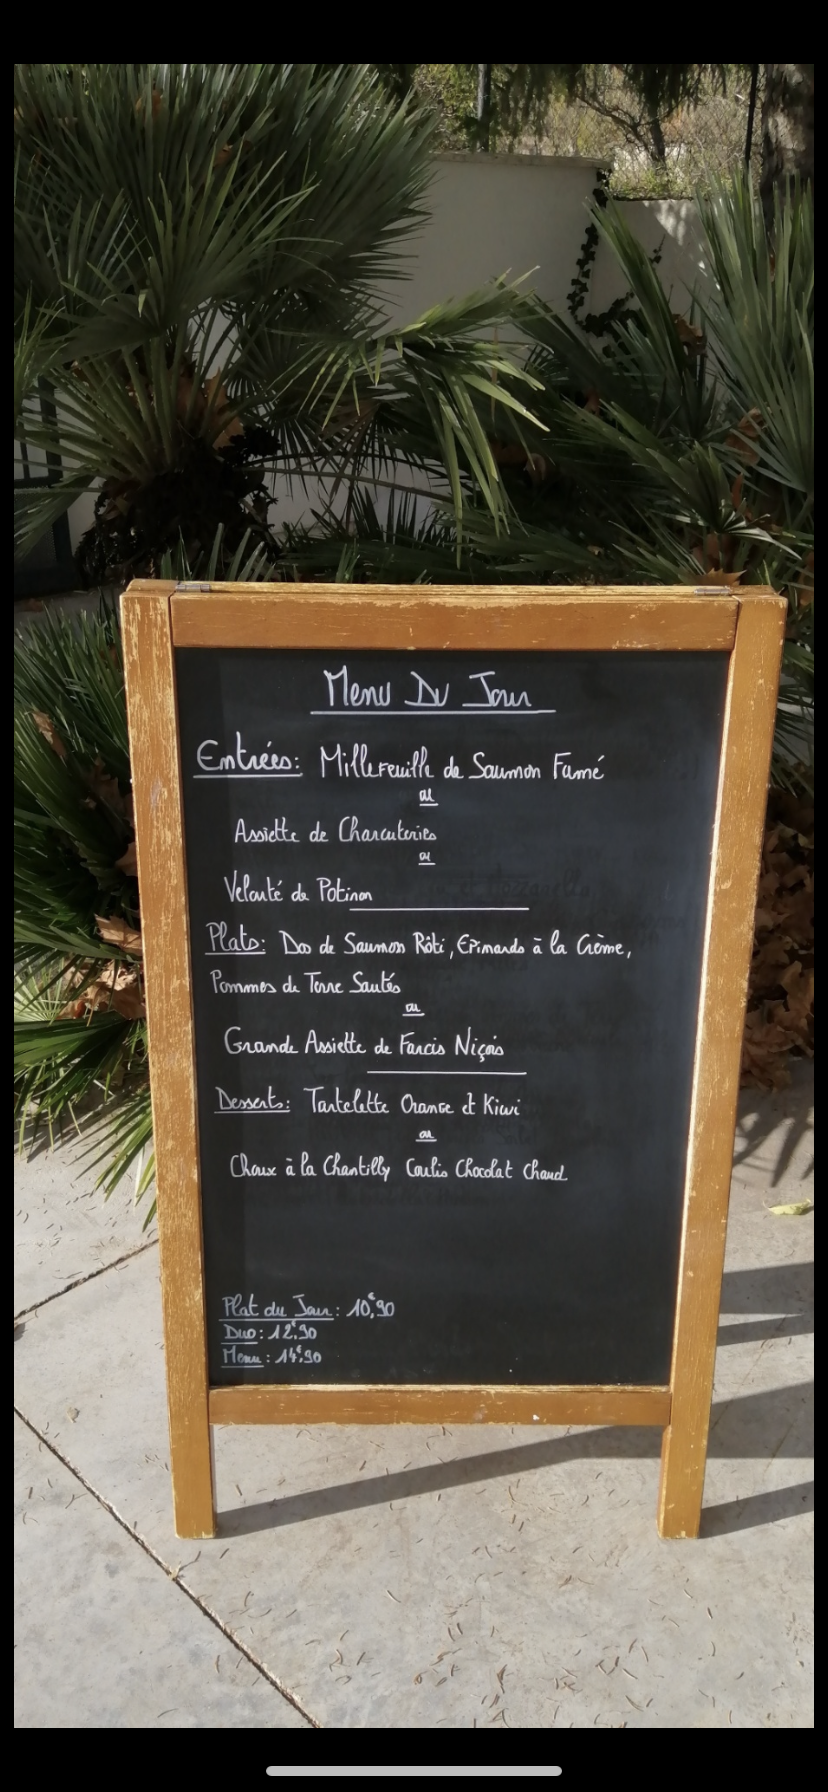 Menu Du Jour
Entrées: Millefeuille de Saumon Fumé
ou
Assiette de Charcuteries
ou
Velouté de Potiron
Plats: Dos de Saumon Rôti, Epinards à la Crème,
Pommes de Terre Sautés
ou
Grande Assiette de Farcis Niçois
Desserts: Tartelette Orange et Kiwi
ou
Choux à la Chantilly Coulis Chocolat Chaud
Plat du Jour: 10€,90
Duo: 12€,90
Menu: 14€,90